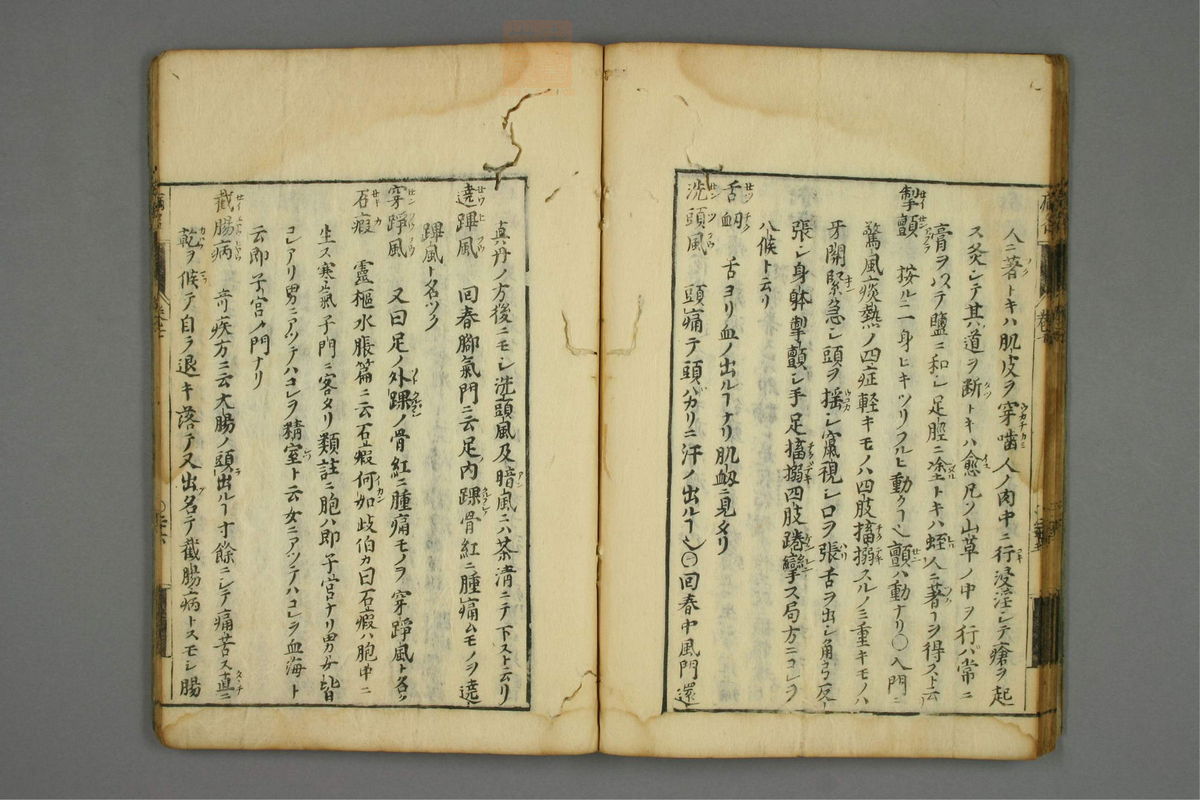 人ニ著トキハ肌皮ヲ穿嚙人ノ肉中ニ行浸淫シテ瘡ヲ起
ス灸シテ其道ヲ断トキハ愈凡ソ山草ノ中ヲ行バ常ニ
膏ヲ以テ鹽ニ和シ足脛ニ塗トキハ蛭人ニ著ヿヲ得スト云
掣顫 按ルニ身ヒキツリフルヒ動クヿ也顫ハ動ナリ〇入門ニ
驚風痰熱ノ四症軽キモノハ四肢搐搦スルノミ重キモノハ
牙關緊急シ頭ヲ揺シ窩視シ口ヲ張舌ヲ出シ角弓反
張シ身躰掣顫シ手足搐搦四肢踡攣ス局方ニコレヲ
八候ト云リ
舌衂 舌ヨリ血ノ出ルヿナリ肌衂ニ見タリ
洗頭風 頭痛テ頭バカリニ汗ノ出ルヿ也〇回春中風門還
真丹ノ方後ニモシ洗頭風及暗風ニハ茶清ニテ下スト云リ
遶䠋風 回春脚氣門ニ云足ノ内踝骨紅ニ腫痛ムモノヲ遶
䠋風ト名ツク
穿踭風 又曰足ノ外踝ノ骨紅ニ腫痛モノヲ穿踭風ト名ク
石瘕 靈樞水脹篇ニ云石瘕何如歧伯カ曰石瘕ハ胞中ニ
生ス寒氣子門ニ客タリ類註ニ胞ハ即子宮ナリ男女皆
コレアリ男ニアツテハコレヲ精室ト云女ニアツテハコレヲ血海ト
云即子宮ノ門ナリ
截腸病 奇疾方ニ云大腸ノ頭出ルヿ寸餘ニシテ痛苦ス直ニ
乾ヲ候テ自ラ退キ落テ又出名テ截腸病トスモシ腸